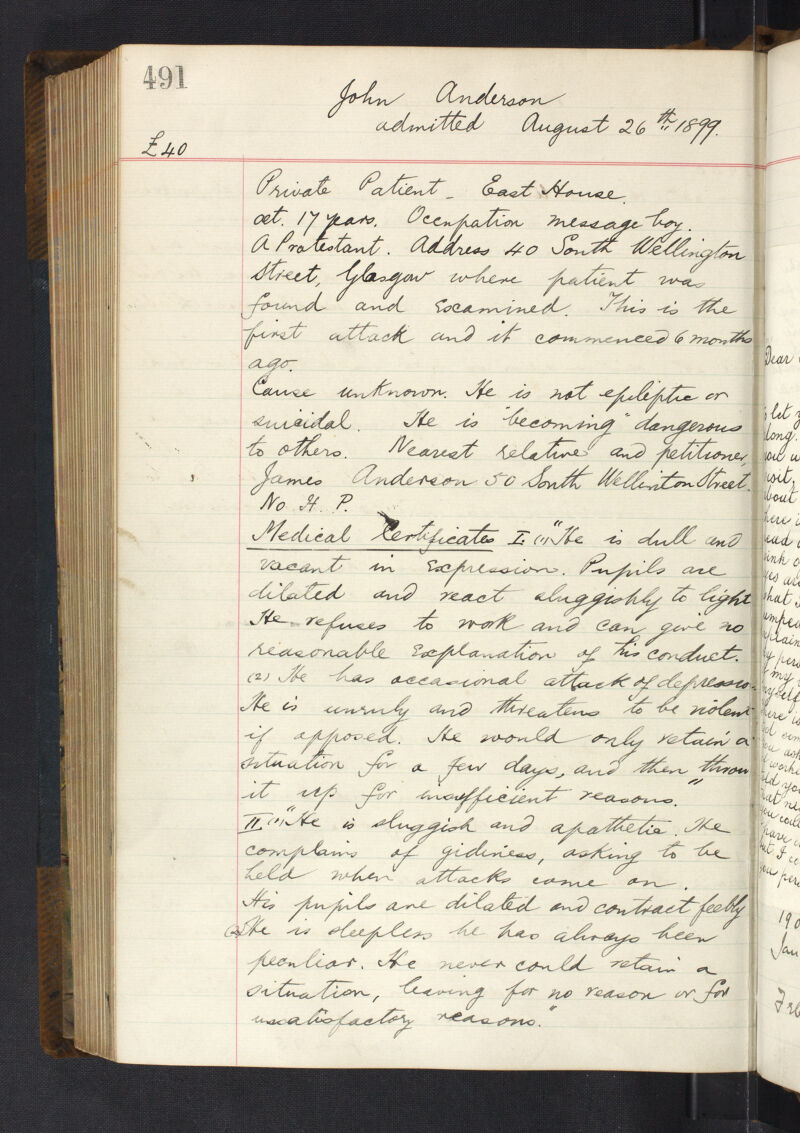 491
John Anderson
admitted August 26th 1899.
£40
Private Patient - East House.
aet. 17 years. Occupation message boy.
A Protestant. Address 40 South Wellington
Street, Glasgow where patient was
found and examined. This is the
first attack and it commenced 6 months
ago.
Cause unknown. He is not epileptic or
suicidal. He is "becoming" dangerous
to others. Nearest relative and petitioner,
James Anderson 50 South Wellinton Street.
No H. P.
Medical Certificates I. (1) "He is dull and
vacant in expression. Pupils are
dilated and react sluggishly to light
He refuses to work and can give no
reasonable explanation of his conduct.
(2) He has occasional attack of depression.
He is unruly and threatens to be violent
if opposed. He would only retain a
situation for a few days, and then throw
it up for insufficient reasons."
II. (1) "He is sluggish and apathetic. He
complains of gidiness, asking to be
held when attacks come on.
His pupils are dilated and contract feebly
(2) He is sleepless he has always been
peculiar. He never could retain a
situation, leaving for no reason or for
unsatisfactory reasons."
Dear
let
long.
190
Jan